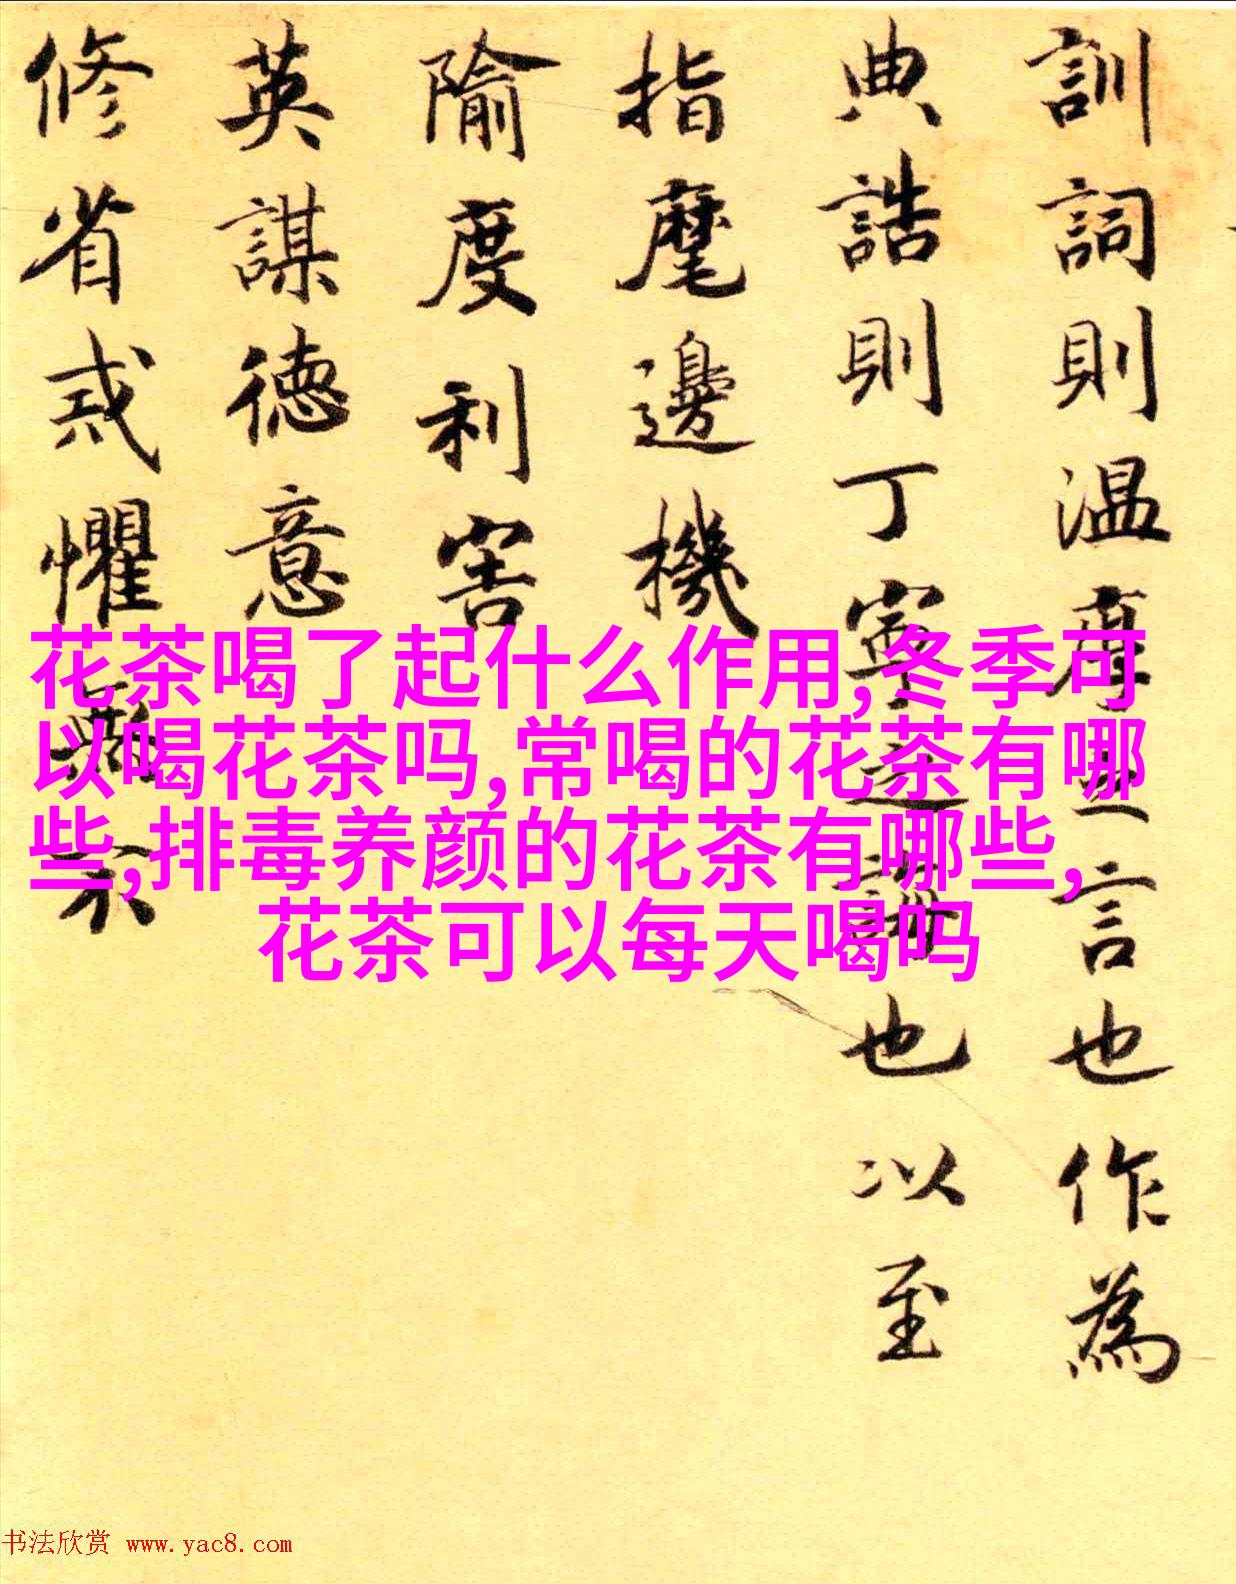 訓詞則温厚之言也作為
典誥則丁寧之也以至
指麾邊機
隃度利害
英謀徳意
修省戒懼不
花茶喝了起什么作用,冬季可
以喝花茶吗,常喝的花茶有哪
些,排毒养颜的花茶有哪些,
花茶可以每天喝吗
书法欣赏 www.yac8.com